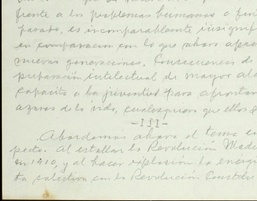 frente a los problemas humanos o fun
perado, es incomparablemente insignif
en comparacion con lo que ahora apren
nuevas generaciones. Conscientes de
preparación intelectual de mayor al
capacita a la juventud para afrontar
azares de la vida, cualesquiera que ellos
-III-
Abordamos ahora el tema
pedo. Al estallar la Revolución Made
en 1910, y al hacer explosión la energ
ta colectiva en la Revolución Constitu